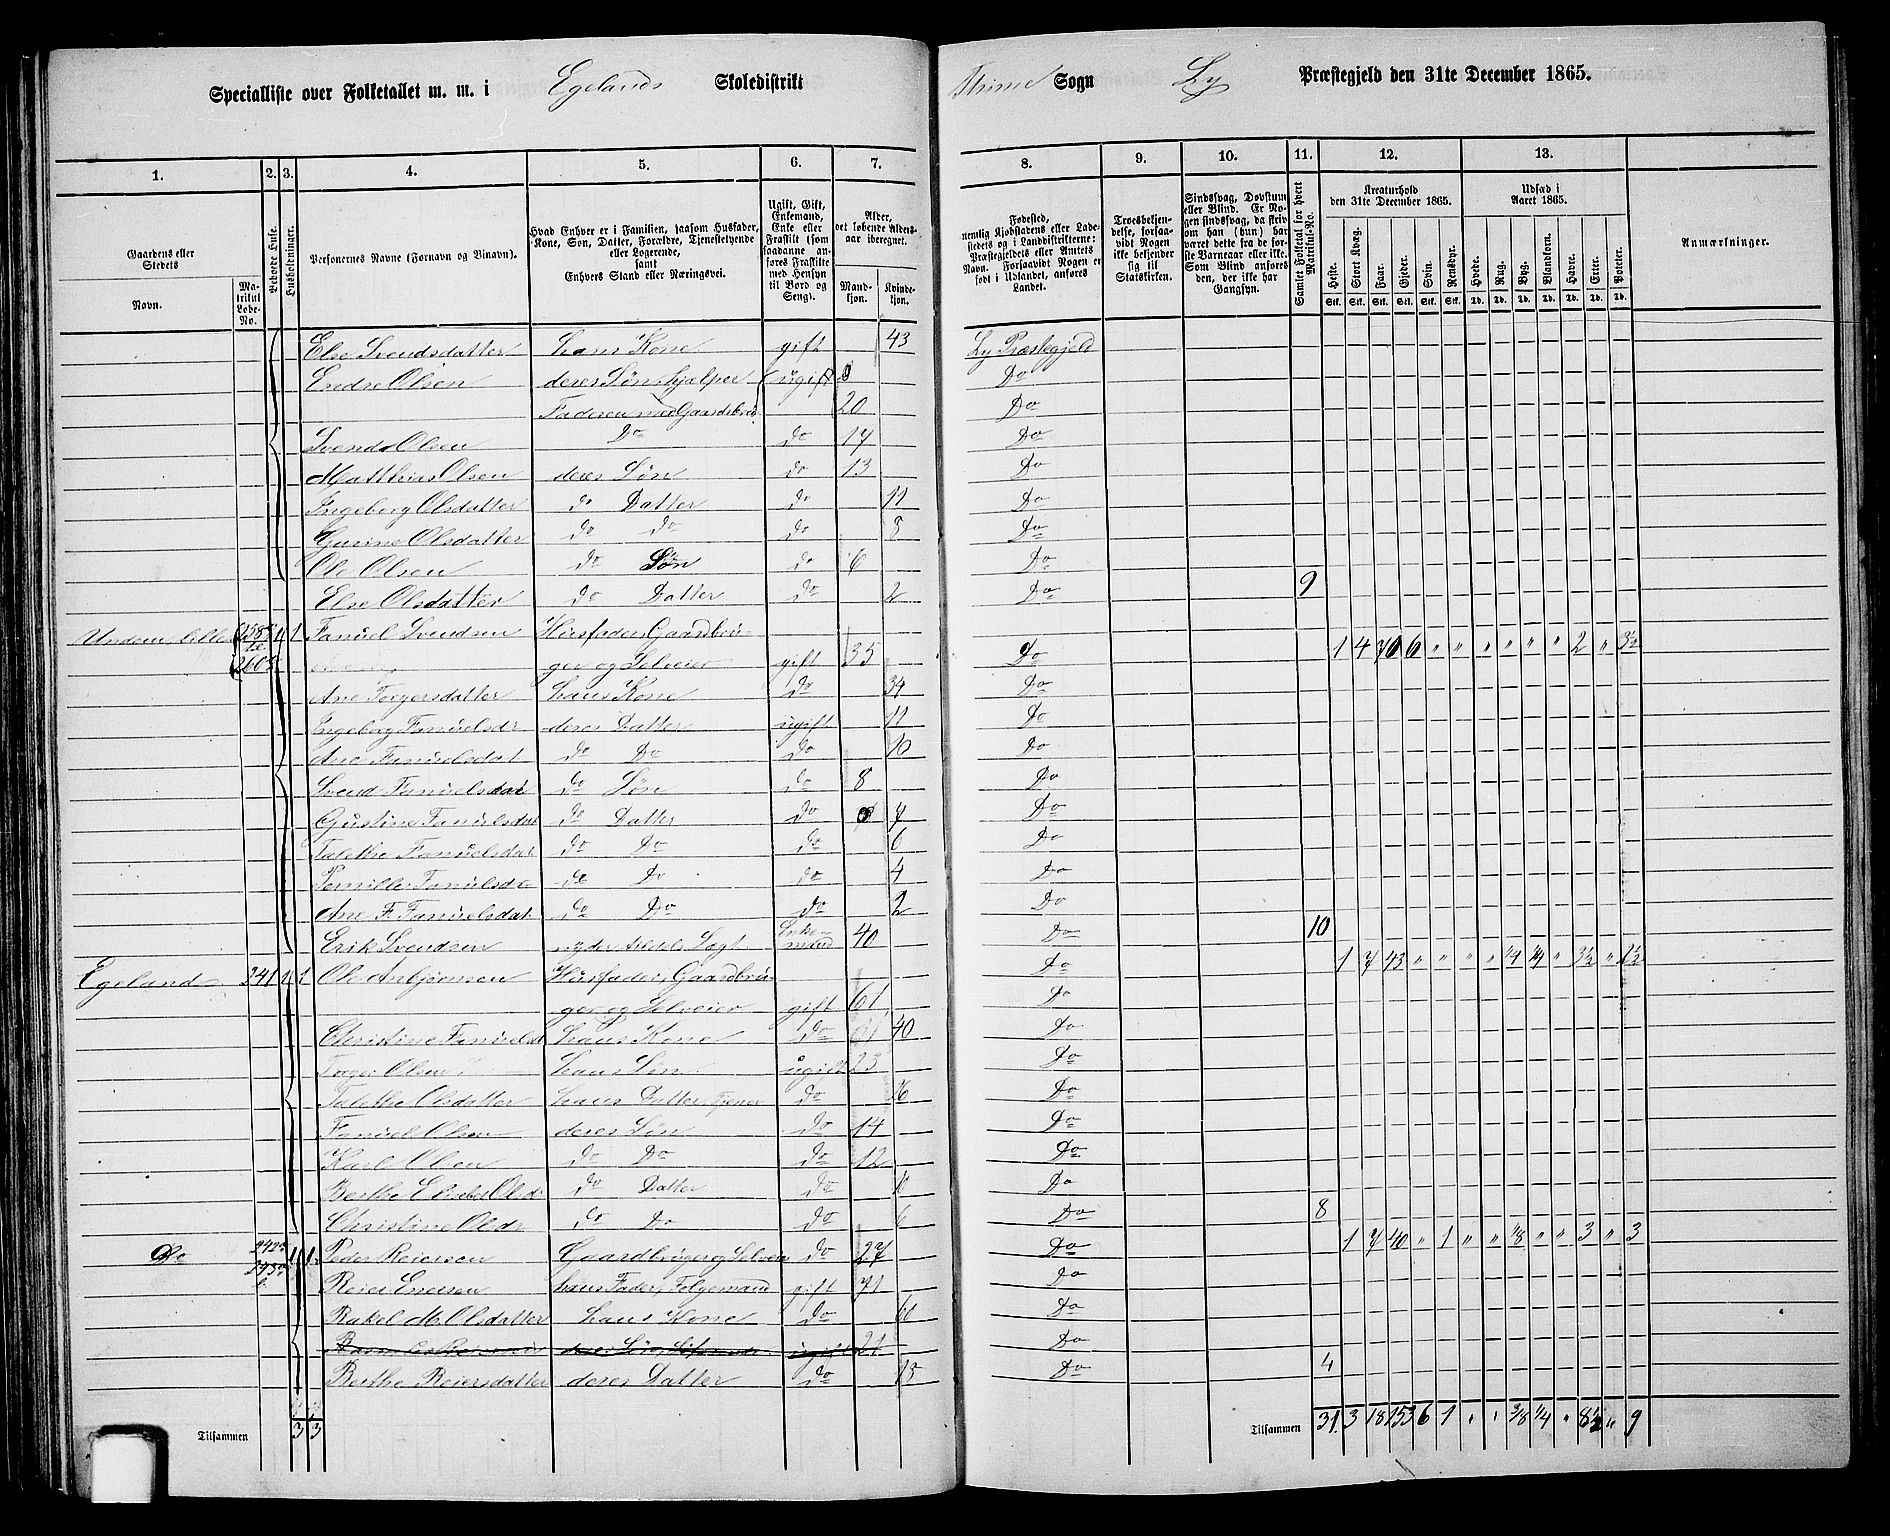 Specialliste over Folketallet m. m. i Egelands Skoledistrikt Thime Sogn Ly Præstegjeld den 31te December 1865.
1. 2. 3. 4. 5. 6. 7. 8. 9. 10. 11. 12. 13.
Gaardens eller Stedets
Navn.
Matrikul Løbe-No.
Beboede Huse.
Husholdninger.
Personernes Navne (Fornavn og Binavn).
Hvad Enhver er i Familien, saasom Husfader, Kone, Søn, Datter, Forældre, Tjenestetyende eller Logerende, samt Enhvers Stand eller Næringsvei.
Ugift, Gift, Enkemand, Enke eller Fraskilt (som saadanne anføres Fraskilte med Hensyn til Bord og Seng).
Alder, det løbende Alders-aar iberegnet.
Mandkjøn. Kvindekjøn.
Fødested, nemlig Kjøbstadens eller Ladestedets og i Landdistrikterne: Præstegjeldets eller Amtets Navn. Forsaavidt Nogen er født i Udlandet, anføres Landet.
Troesbekjendelse, forsaavidt Nogen ikke bekjender sig til Statskirken.
Sindssvag, Døvstum eller Blind. Er Nogen sindssvag, da skriv om han (hun) har været dette fra de første Barneaar eller ikke. Som Blind anføres den, der ikke har Gangsyn.
Samlet Folketal for hvert Matrikul-No.
Kreaturhold den 31te December 1865.
Heste. Stort Kvæg. Faar. Gjeder. Svin. Rensdyr.
Stk. Stk. Stk. Stk. Stk. Stk.
Udsæd i Aaret 1865.
Hvede. Rug. Byg. Blandkorn. Havre. Erter. Poteter.
Td. Td. Td. Td. Td. Td. Td.
Anmærkninger.
Else Svendsdatter hans Kone gift 43 Ly Præstegjeld
Endre Olsen deres Søn, hjælper ugift Do
Faderen med Gaardsbrug 20 Do
Svend Olsen Do do 17 Do
Matthias Olsen deres Søn do 13 Do
Ingeborg Olsdatter do Datter do 11 Do
Gurine Olsdatter do do do 8 Do
Ole Olsen do Søn do 6 Do
Else Olsdatter do Datter do 2 Do 9
Undem, lille 1 1 Fanuel Svendsen Husfader, Gaardbru-
260 ger og Selveier gift 35 Do 1 4 70 6 " " " " " " 2 " 3½
Ane Torgersdatter hans Kone Do 34 Do
Ingeborg Fanuelsdr deres Datter ugift 11 Do
Ane Fanuelsdat do Do do 10 Do
Svend Fanuelsdat do Søn do 8 Do
Gustine Fanuelsdat do Datter do 7 Do
Talethe Fanuelsdat do Do do 6 Do
Pernille Fanuelsdr do Do do 4 Do
Ane F. Fanuelsdat. do Do do 2 Do
Erik Svendsen nyder Aldels Lægt Enkemand 40 Do 10
Egeland 241 1 1 Ole Anbjørnsen Husfader, Gaardbru- Do 1 7 43 " " " " " ¼ ¼ 3½ " 2½
ger og Selveier gift 61 Do
Christine Fanuelsd hans Kone do 40 Do
Torger Olsen hans Søn ugift 23 Do
Talethe Olsdatter hans Datter, Tjener do 16 Do
Fanuel Olsen deres Søn do 14 Do
Karl Olsen do Do do 12 Do
Berthe Elisabet Olsd do Datter do Do
Christine Olsdr do Do do 6 Do 8
Do 242 243 1 1 Peder Reiersen Gaardbruger og Selveier do 27 Do 1 7 40 " 1 " " ⅛ " " 3 " 3
Reier Enersen hans Fader, Folgemand gift 71 Do
Rakel M. Olsdatter hans Kone do 60 Do
deres Søn, ugift 21 Do
Berthe Reiersdatter deres Datter do 15 Do 4
Tilsammen 3 3 Tilsammen 31 3 18 153 6 1 " " ⅜ ¼ " 8½ " 9